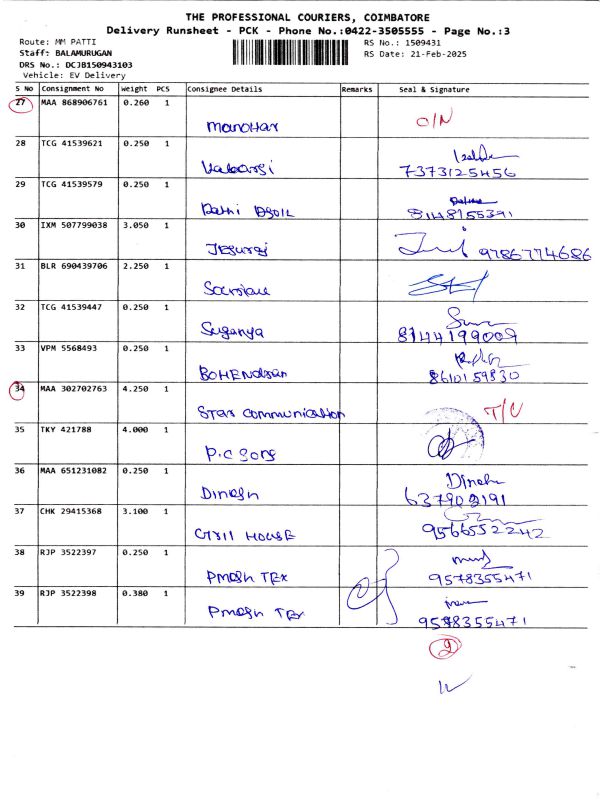 THE PROFESSIONAL COURIERS, COIMBATORE
Delivery Runsheet - PCK - Phone No.:0422-3505555 - Page No.:3
Route: MM PATTI
RS No.: 1509431
Staff: BALAMURUGAN
RS Date: 21-Feb-2025
DRS No.: DCJB150943103
Vehicle: EV Delivery
S No Consignment No Weight PCS Consignee Details Remarks Seal & Signature
27 MAA 868906761 0.260 1 Manohar O/N
28 TCG 41539621 0.250 1 7373125456
29 TCG 41539579 0.250 1 8148155391
30 IXM 507799038 3.050 1 Jesuraj 9786774686
31 BLR 690439706 2.250 1
32 TCG 41539447 0.250 1 Suganya 8144199009
33 VPM 5568493 0.250 1 8610159830
34 MAA 302702763 4.250 1 Star Communication
35 TKY 421788 4.000 1 P.C Sons
36 MAA 651231082 0.250 1 Dinesh Dinesh 637902191
37 CHK 29415368 3.100 1 House 9566552242
38 RJP 3522397 0.250 1 Tex 9578355471
39 RJP 3522398 0.380 1 Tex 9578355471
2